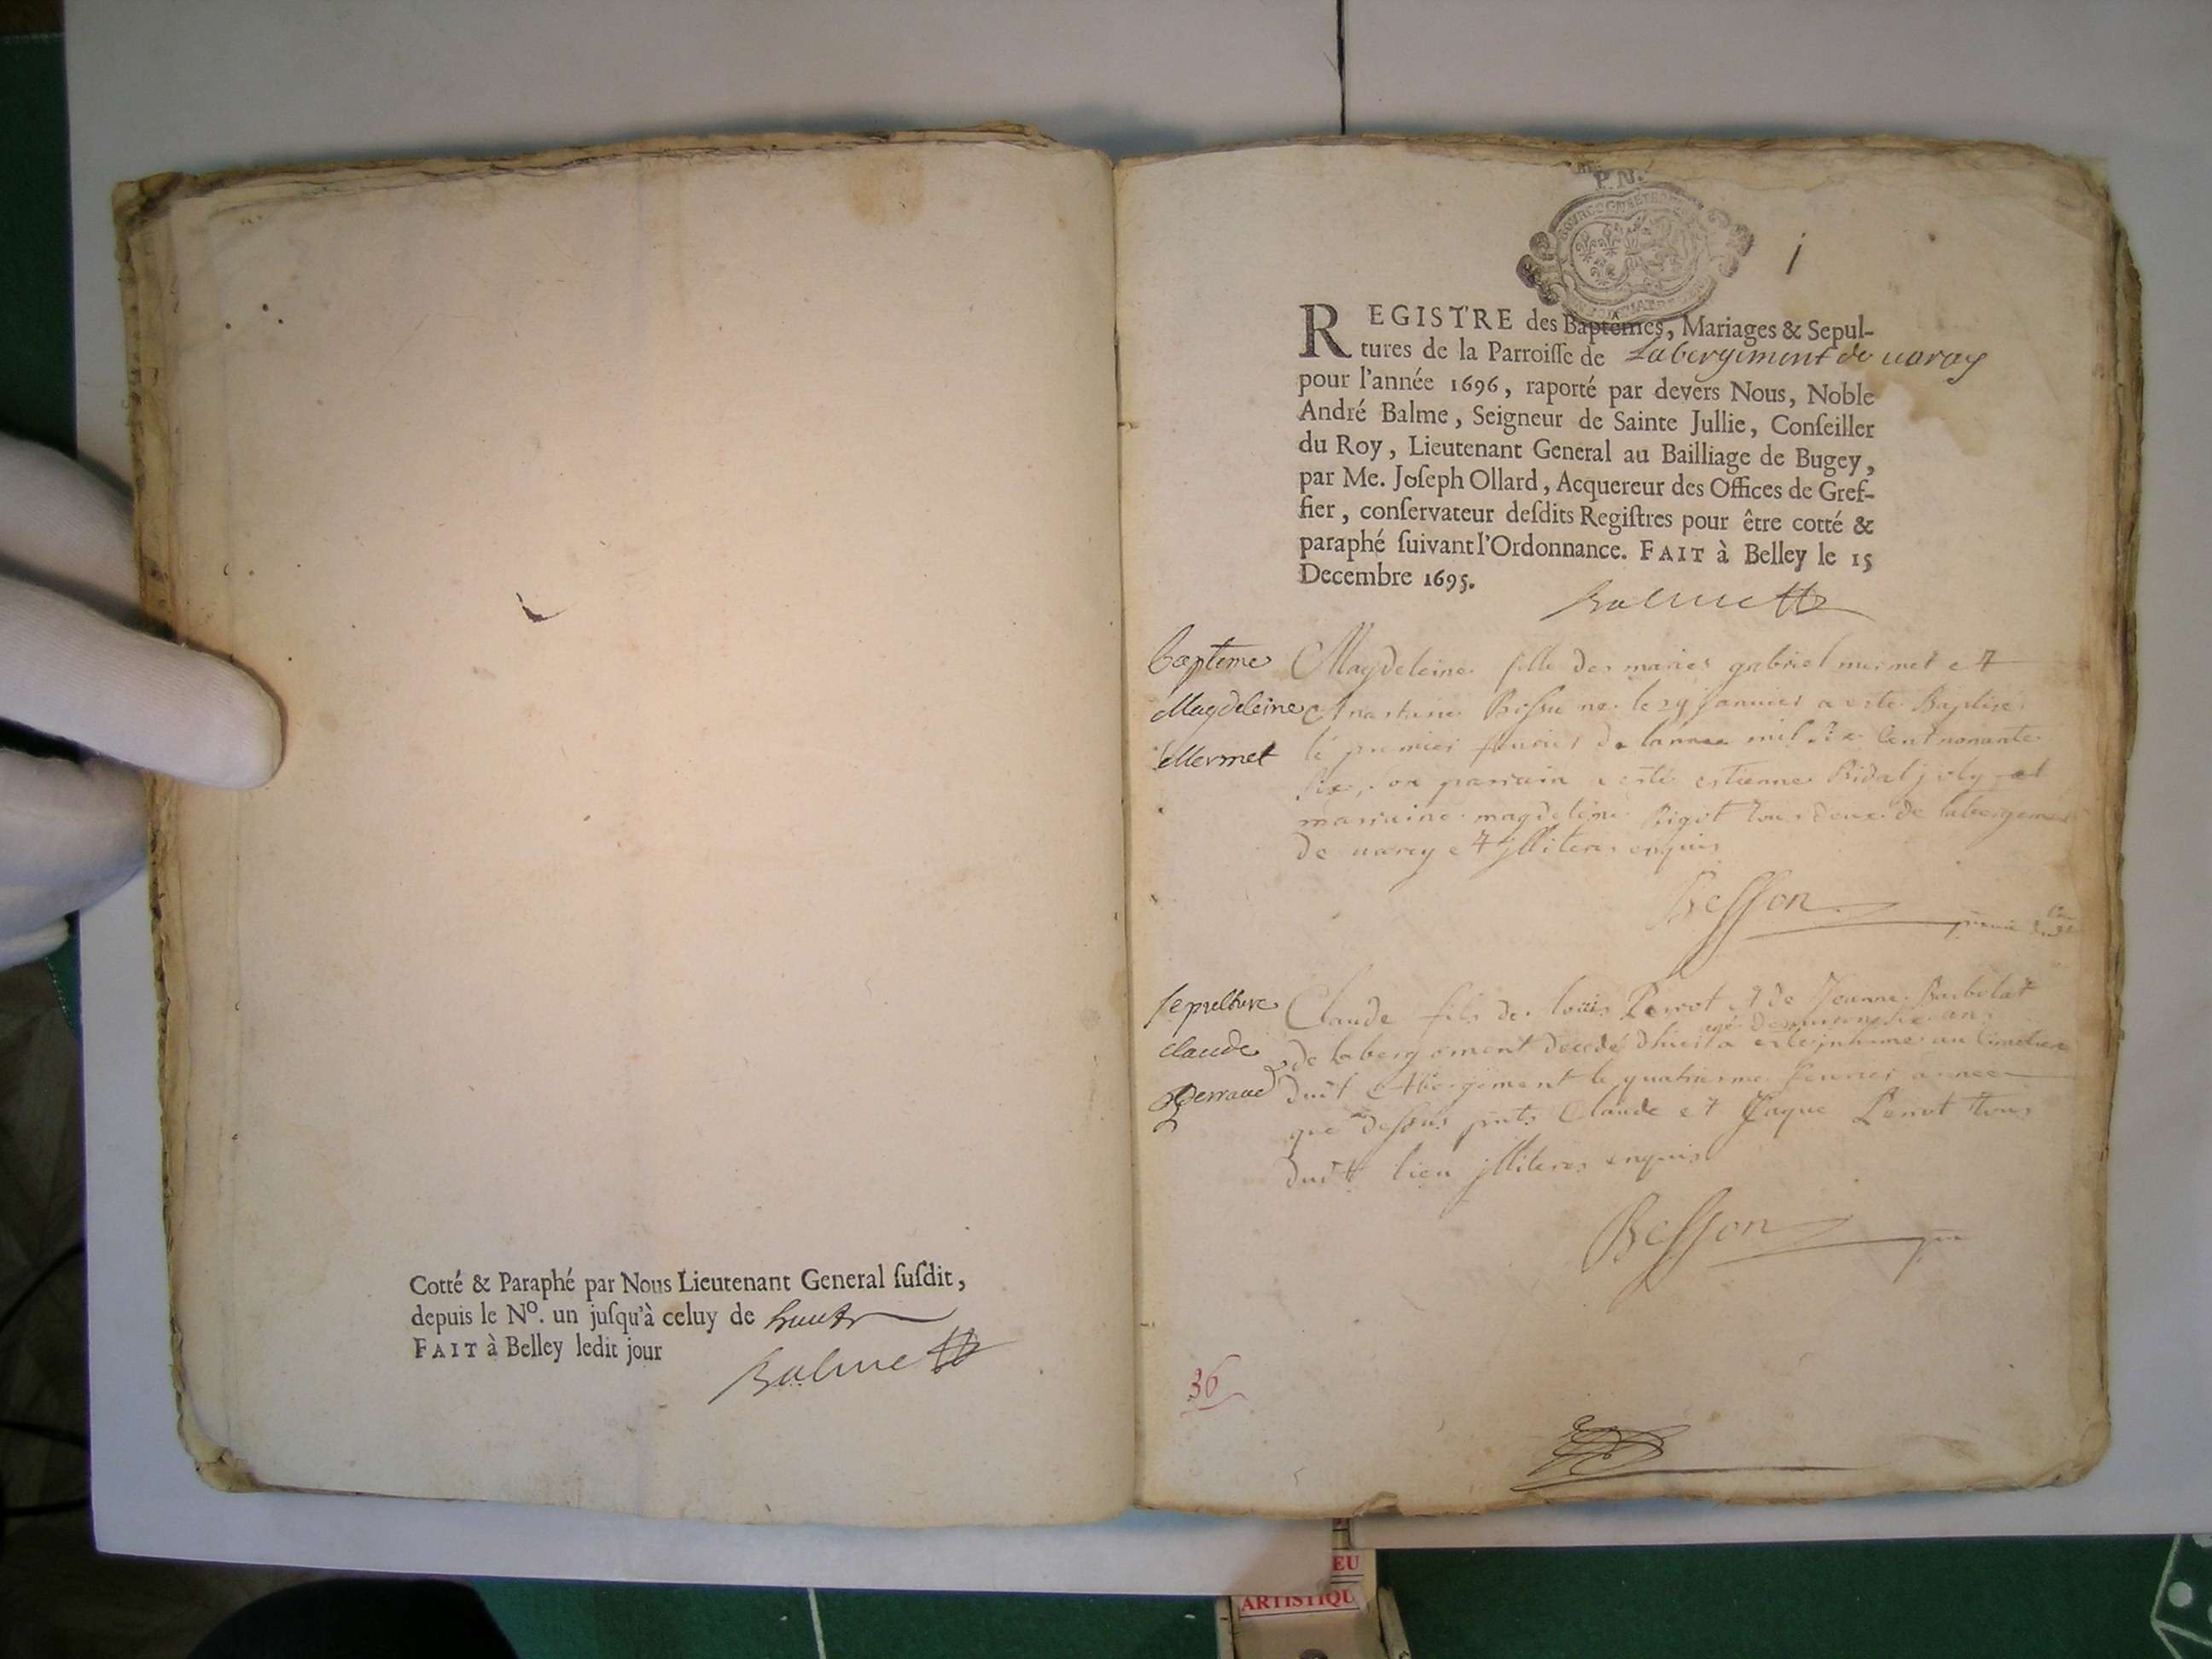 Cotté & Paraphé par Nous Lieutenant General ſuſdit,
depuis le Nº. un juſqu'à celuy de
FAIT à Belley ledit jour
Balme
P.N.
1
REGISTRE des Baptêmes, Mariages & Sepul-
tures de la Parroiſſe de Labergement de uarey
pour l'année 1696, raporté par devers Nous, Noble
André Balme, Seigneur de Sainte Jullie, Conſeiller
du Roy, Lieutenant General au Bailliage de Bugey,
par Me. Joſeph Ollard, Acquereur des Offices de Gref-
fier, conſervateur deſdits Regiſtres pour être cotté &
paraphé ſuivant l'Ordonnance. FAIT à Belley le 15
Decembre 1695.
Balme
bapteme
Magdeleine
Mermet
Magdeleine fille des maries gabriel mermet et
ne le 29 Januier a este Baptise
le premier feurier de mil six Cent nonante
six, son parrain a esté estienne Bidal joly et
marraine magdelene Bigot tous deux de labergement
de uarey et jlliteres enquis
Besson
sepulture
claude
Perraud
Claude fils de loüis Perrot et de Jeanne Barbolat
de labergement decedé dhier a este jnhumé au Cimetiere
dudt Abergement le quatriesme feurier annee
que dessus pnts Claude et Jaque Perrot tous
dudt lieu jlliteres enquis
Besson
36
EU
ARTISTIQU